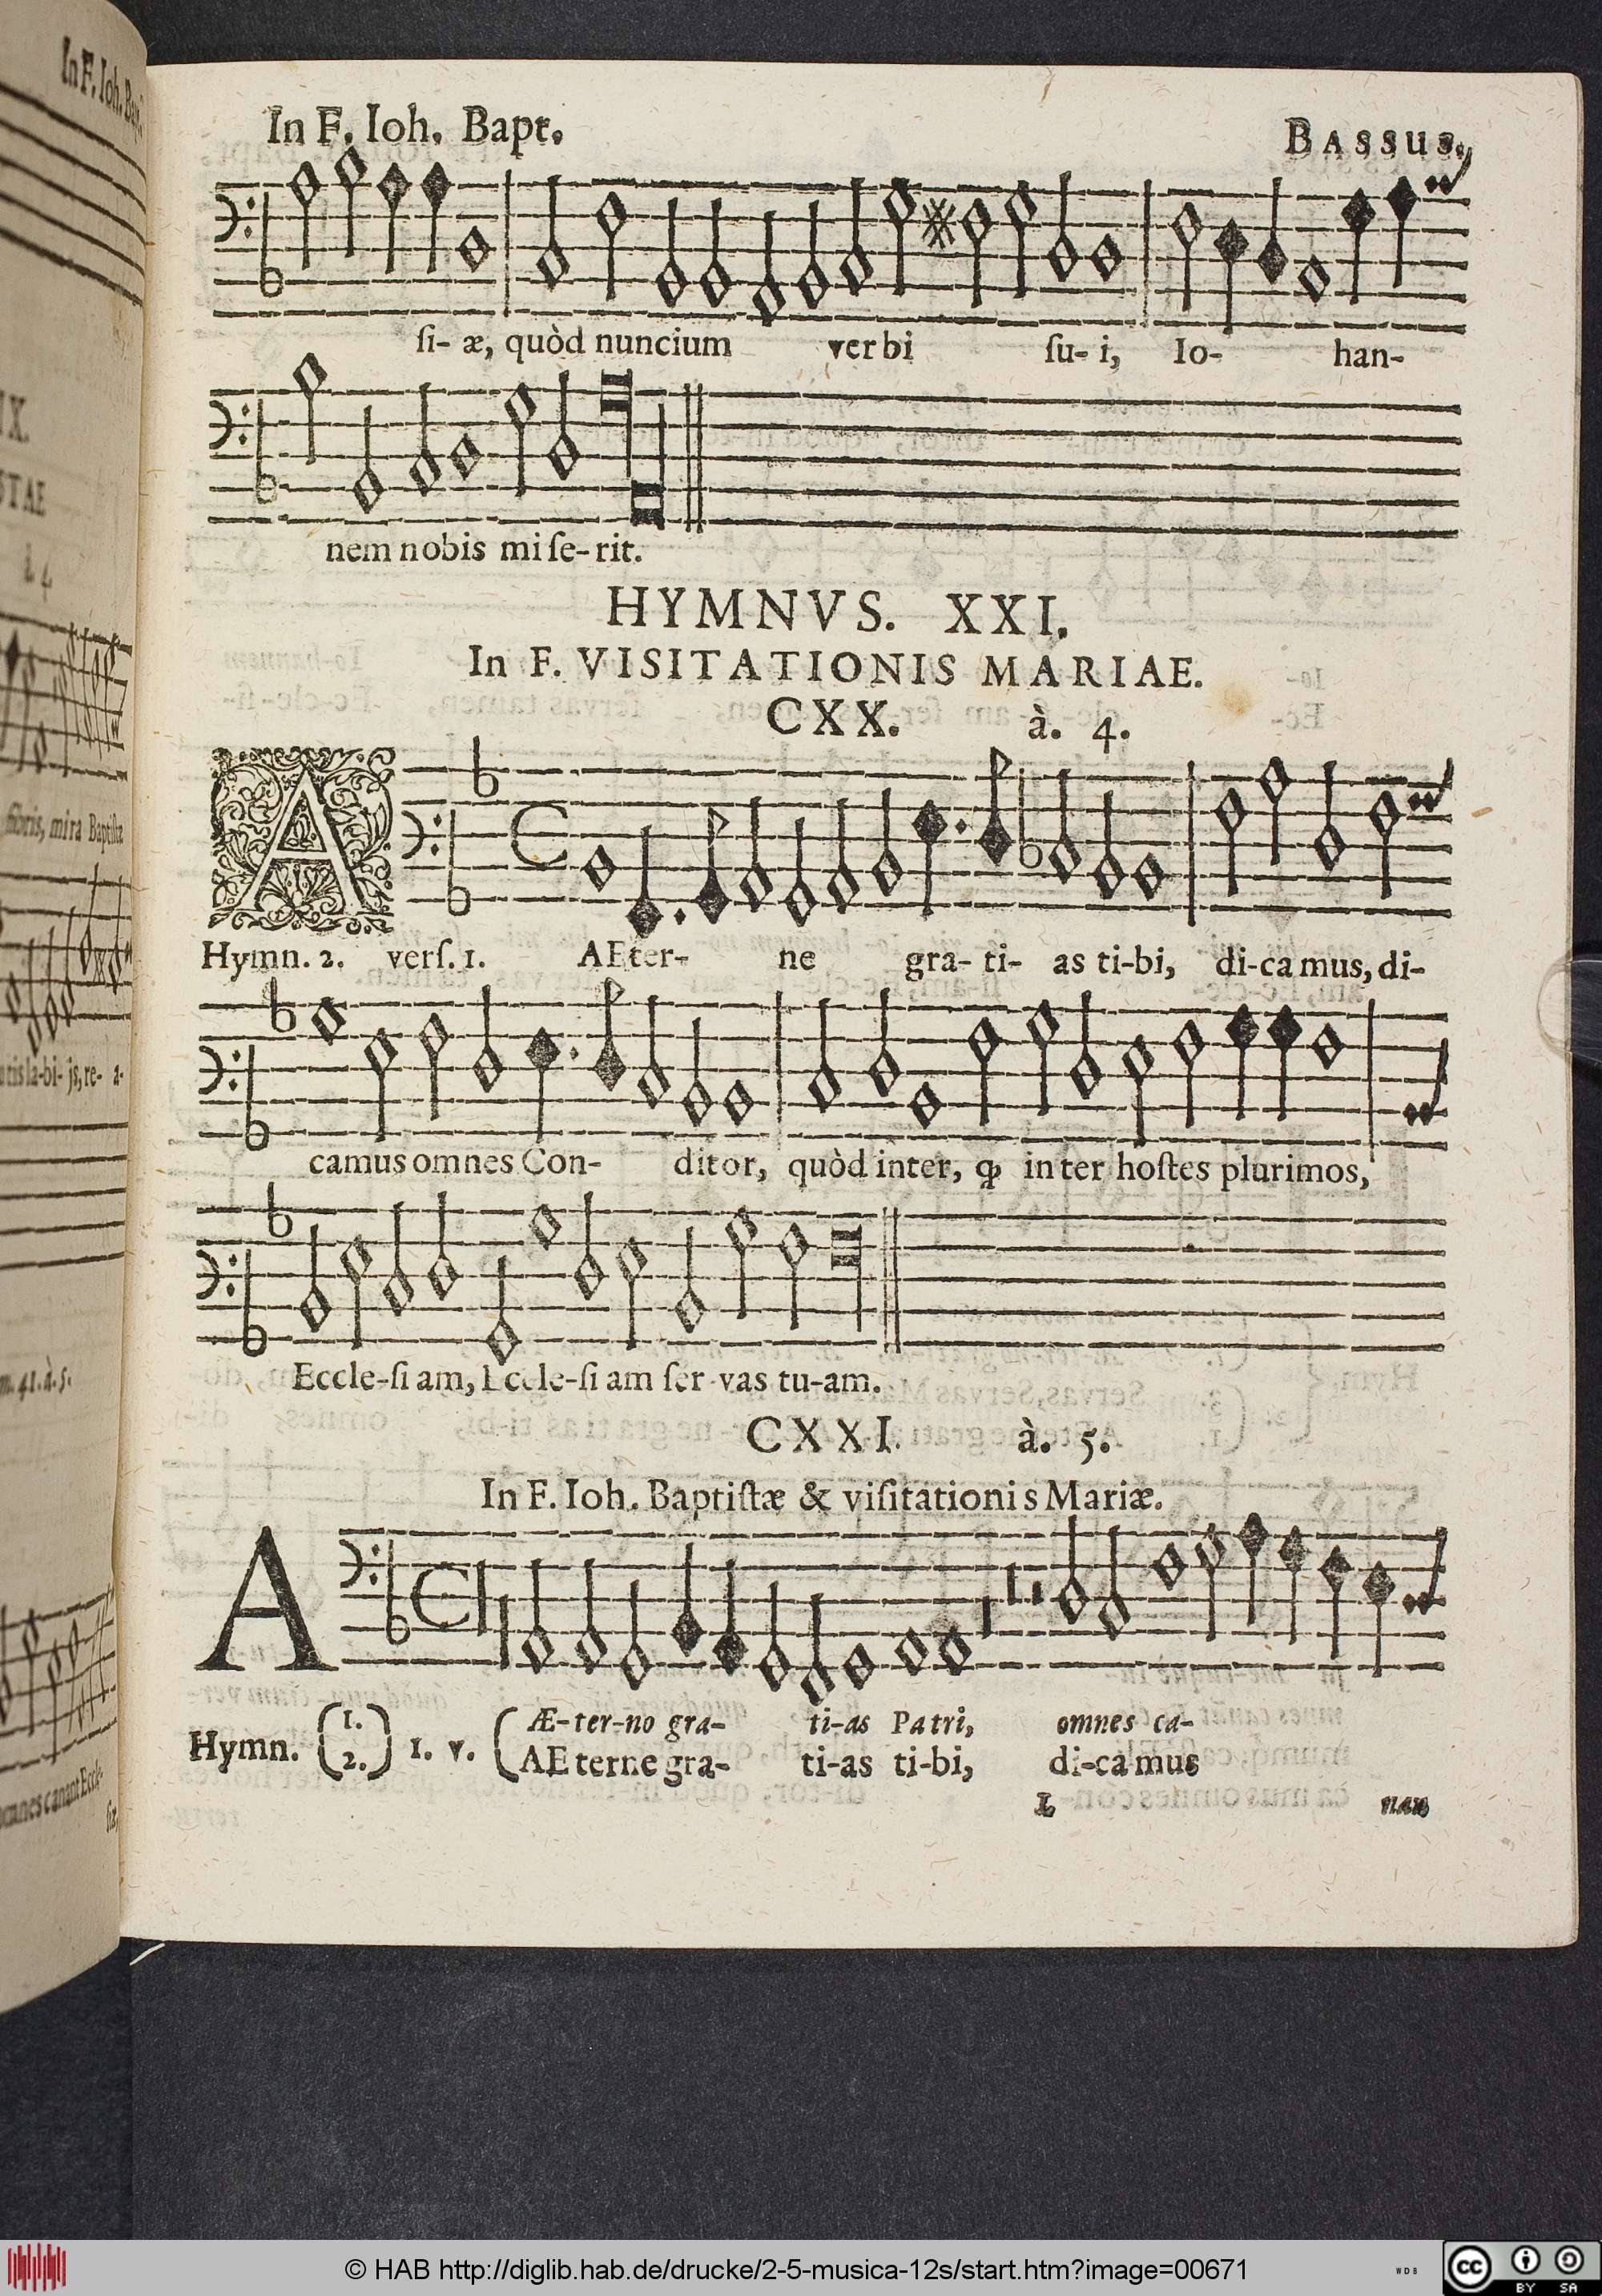 In F. Ioh. Bapt.
BASSUS.
ſi- æ, quòd nuncium verbi ſu- i, Io- han-
nem nobis miſe- rit.
HYMNVS. XXI.
In F. VISITATIONIS MARIAE.
CXX. à. 4.
A
Hymn. 2. verſ. 1. AEter- ne gra- ti- as ti-bi, di-camus, di-
camus omnes Con- ditor, quòd inter, inter hoſtes plurimos,
Eccle-ſiam, Eccle-ſiam ſer vas tu-am.
CXXI. à. 5.
In F. Ioh. Baptiſtæ & viſitationis Mariæ.
A
Æ-ter-no gra- ti-as Patri, omnes ca-
Hymn. (1. 2.) 1. v. (AEterne gra- ti-as ti-bi, di-camus
In F. Ioh.
IX.
fibris, mira Baptiſtæ
la-bi- js, re- a-
omnes canant Eccle-
ſiæ,
© HAB http://diglib.hab.de/drucke/2-5-musica-12s/start.htm?image=00671
WDB
cc
BY SA